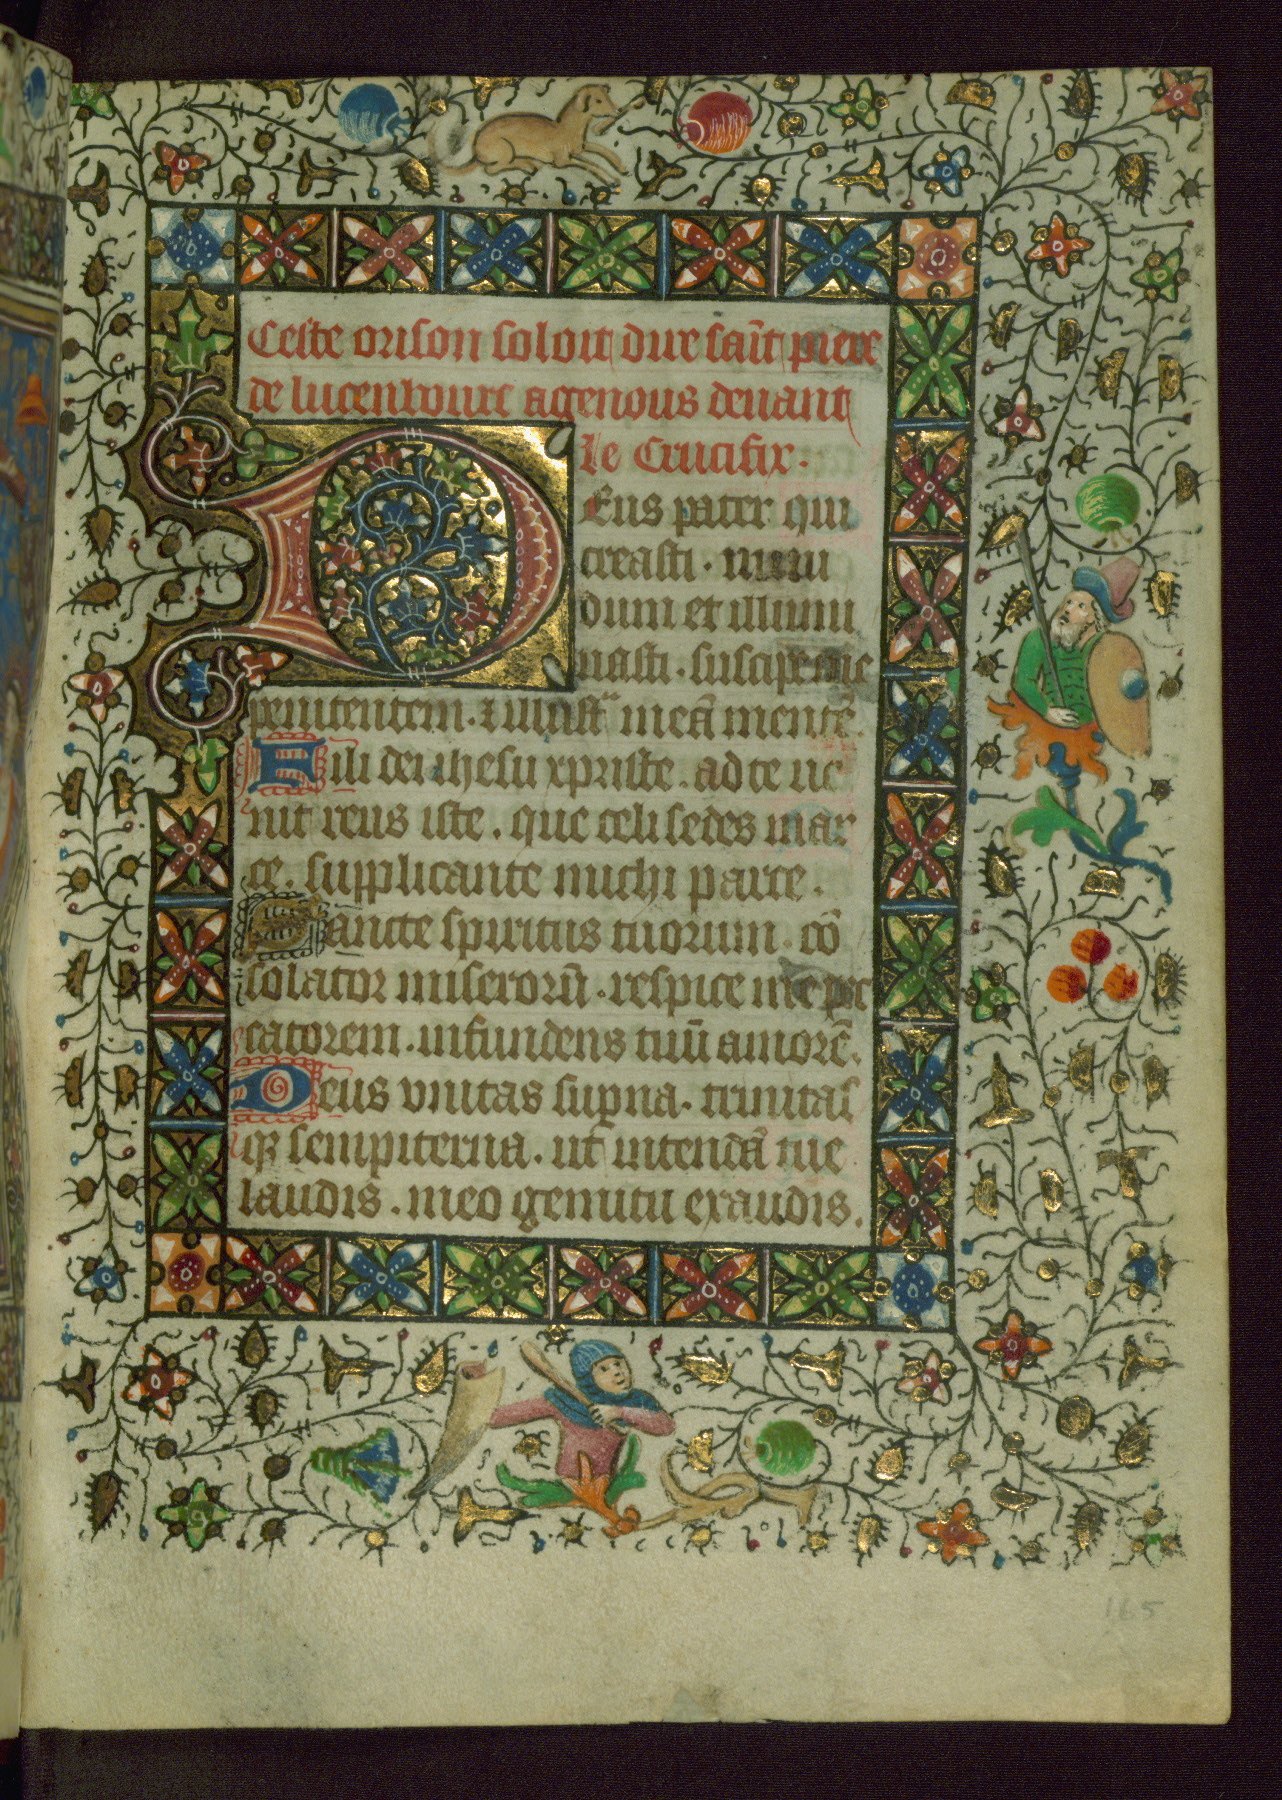 Ceste orison soloit dire saīt piere
de lucenbourc a genous deuant
le Crucifix.
DEus pater qui
creasti. mun
dum et illumi
nasti. suscipe me
penitentem. et illustra meā mentē.
Fili dei ihesu xpriste. ad te ue
nit reus iste. que celi sedes mar
ce. supplicante michi parce.
Sancte spiritus tuorum. cō
solator miserorū. respice me pec
catorem. infundens tuū amorē.
Deus vnitas supna. trinitas
qꝫ sempiterna. ut intendā tue
laudis. meo gemitu exaudis.
165